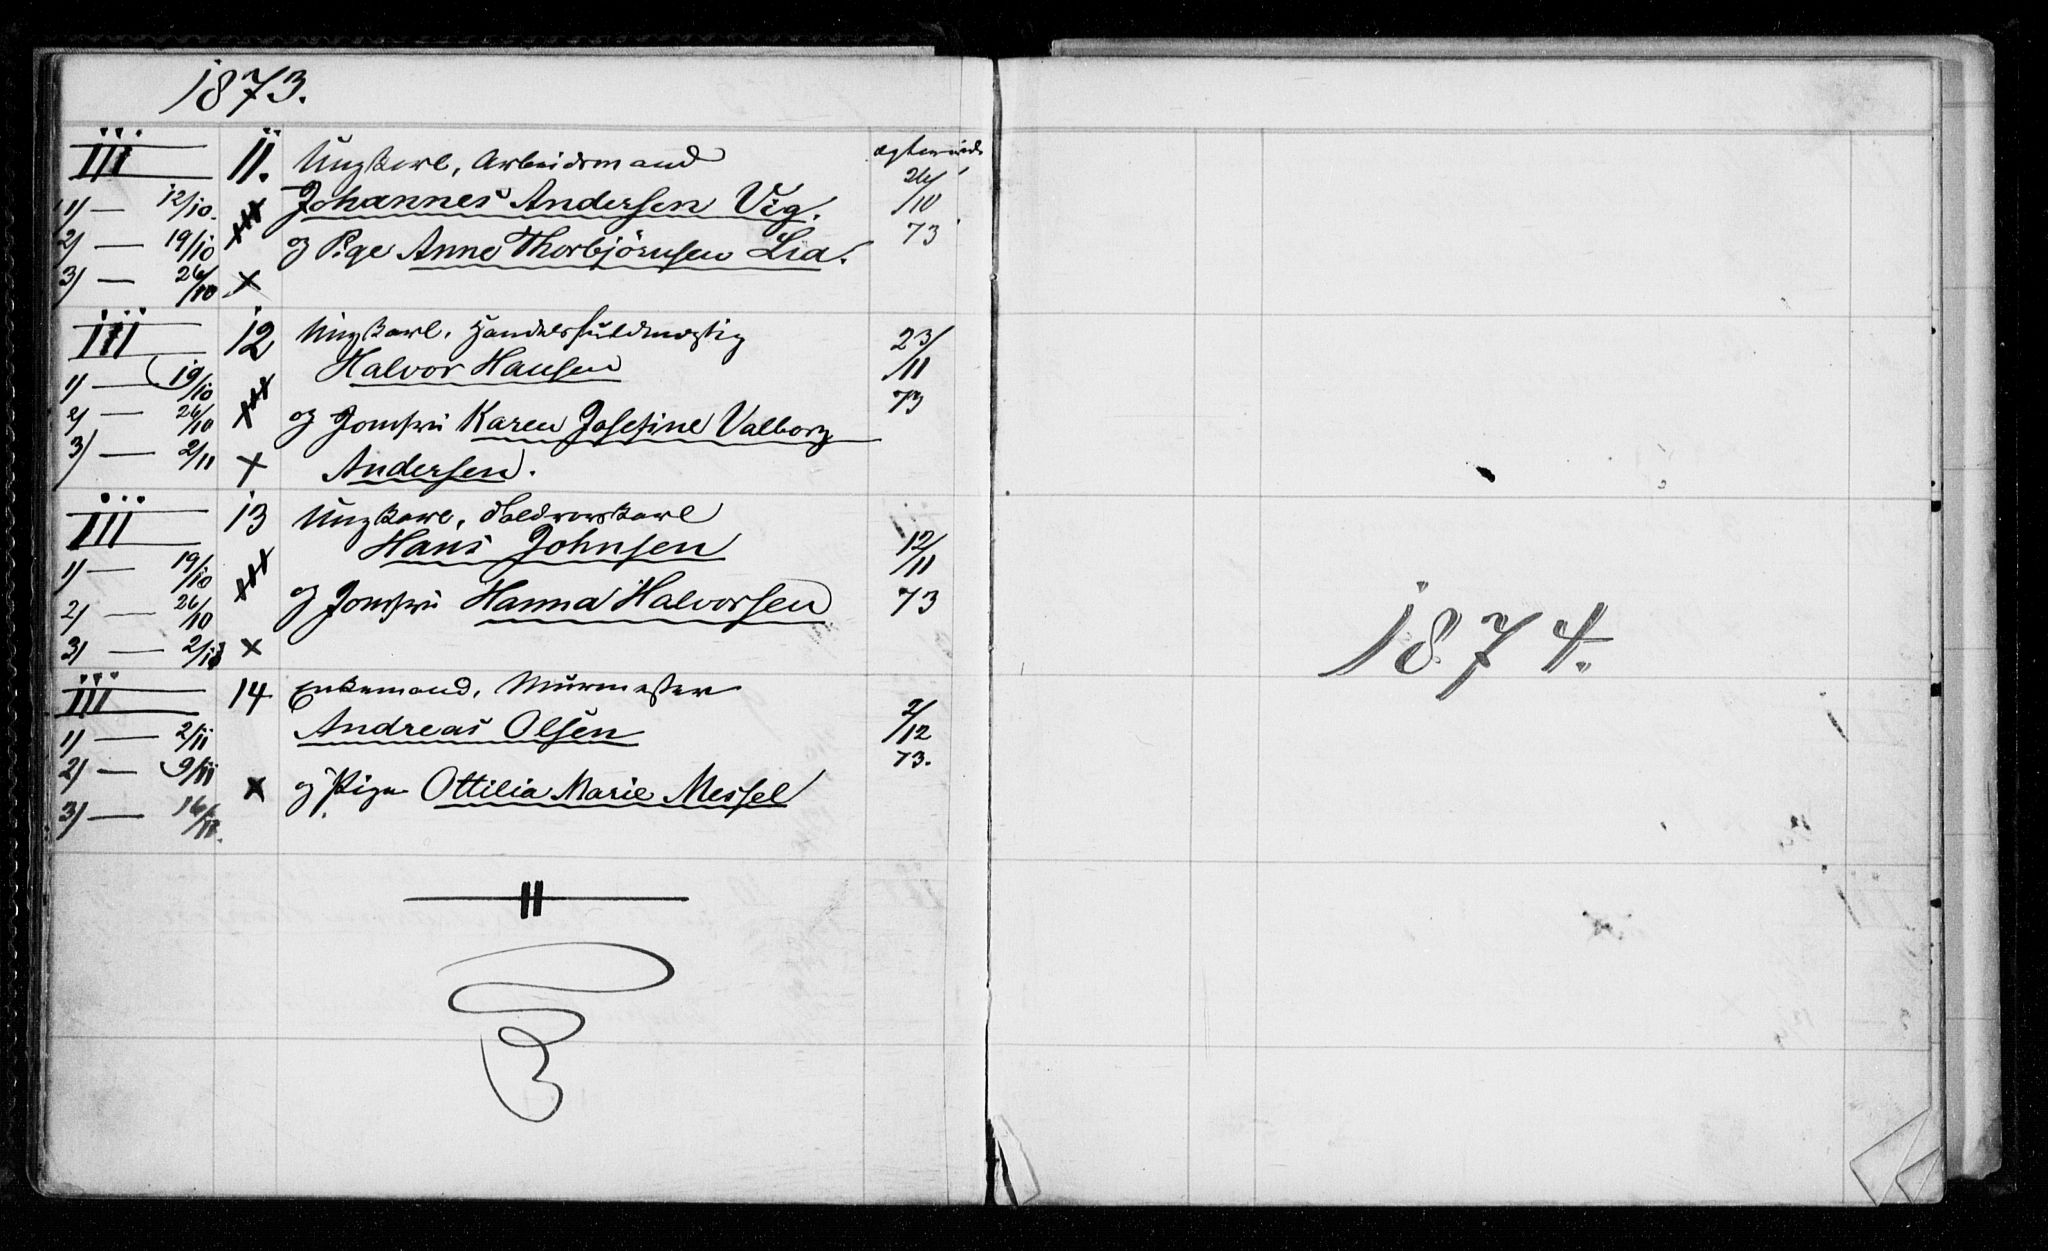 1873.
III 11. Ungkarl, Arbeidsmand ægteviede
1) — 12/10. Johannes Andersen Vig. 26/10
2) — 19/10 og Pige Anne Thorbjørnsen Lia. 73
3) — 26/10 x
III 12 Ungkarl, Handelsfuldmægtig 23/11
1) — 19/10 Halvor Hansen 73
2) — 26/10 og Jomfru Karen Josefine Valborg
3) — 2/11 x Andersen.
III 13 Ungkarl,
1) — 19/10 Hans Johnsen 12/11
2) — 26/10 og Jomfru Hanna Halvorsen 73
3) — 2/11 x
III 14 Enkemand, Murmester
1) — 2/11 Andreas Olsen 2/12
2) — 9/11 x og Pige Ottilia Marie Messel 73.
3) — 16/11.
1874.